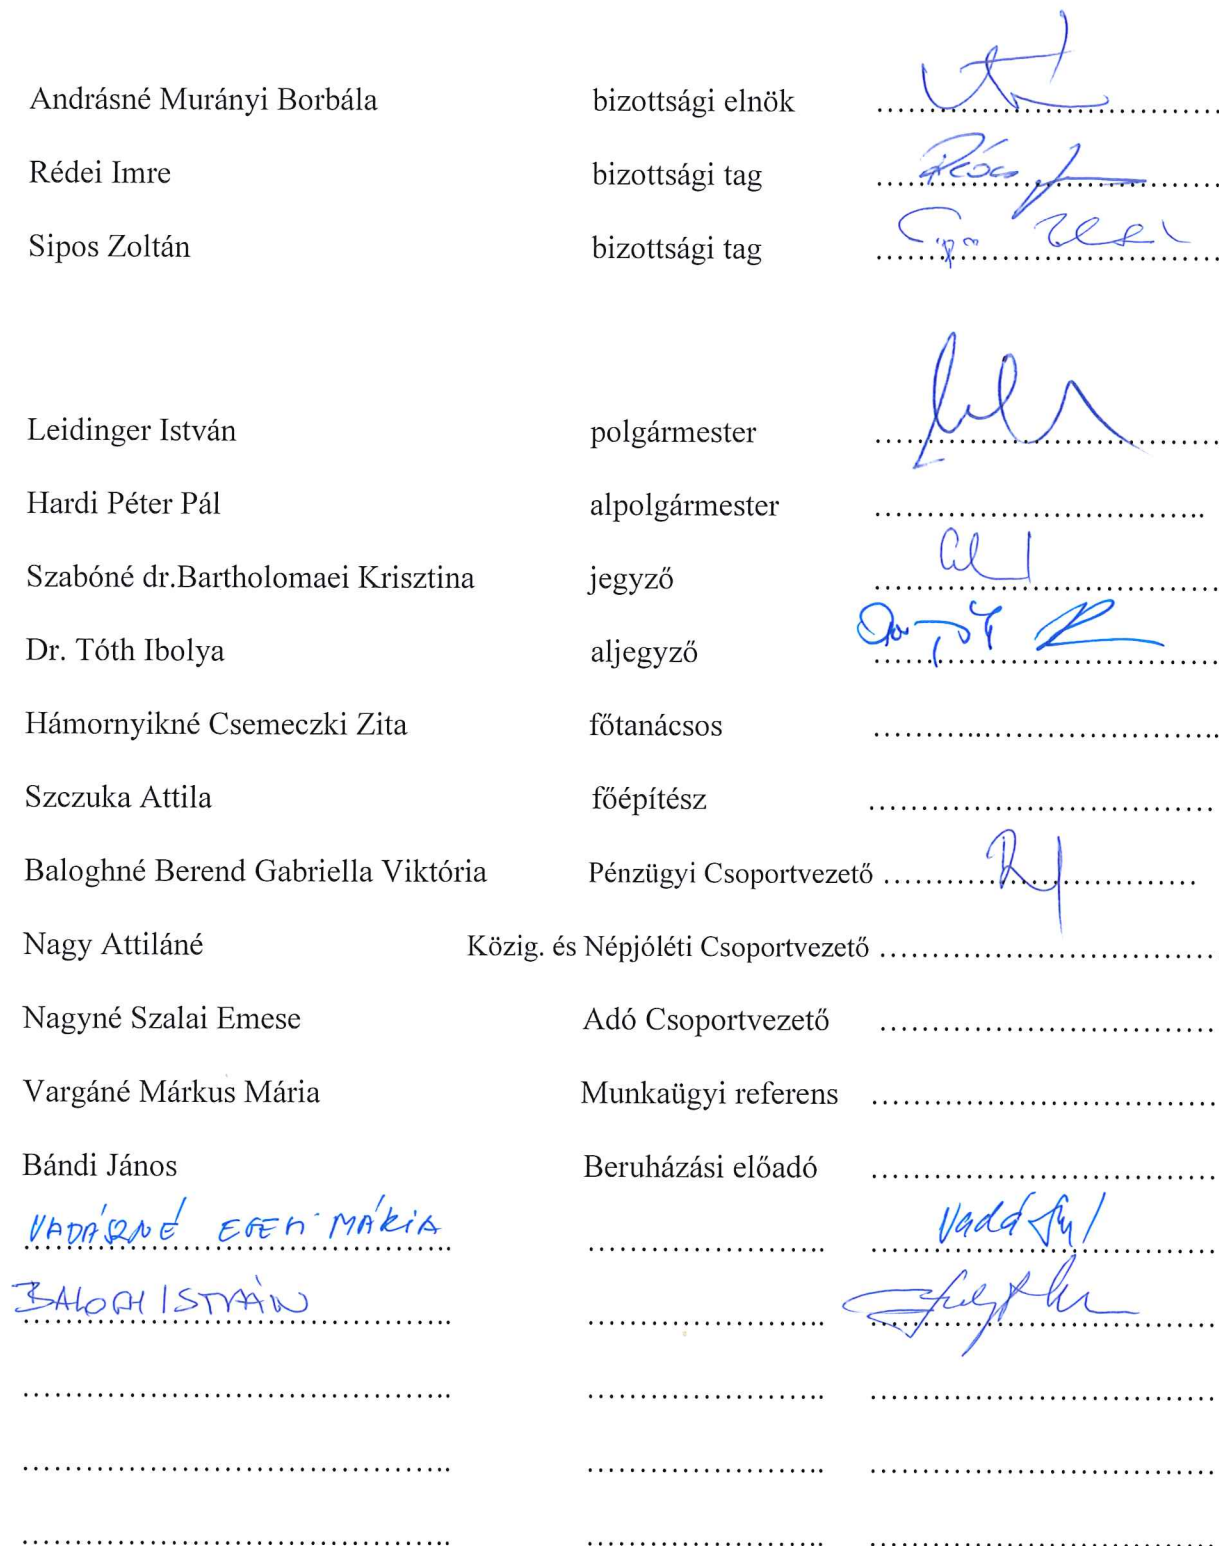 Andrásné Murányi Borbála bizottsági elnök ................................
Rédei Imre bizottsági tag ................................
Sipos Zoltán bizottsági tag ................................
Leidinger István polgármester ................................
Hardi Péter Pál alpolgármester ................................
Szabóné dr.Bartholomaei Krisztina jegyző ................................
Dr. Tóth Ibolya aljegyző ................................
Hámornyikné Csemeczki Zita főtanácsos ................................
Szczuka Attila főépítész ................................
Baloghné Berend Gabriella Viktória Pénzügyi Csoportvezető ................................
Nagy Attiláné Közig. és Népjóléti Csoportvezető ................................
Nagyné Szalai Emese Adó Csoportvezető ................................
Vargáné Márkus Mária Munkaügyi referens ................................
Bándi János Beruházási előadó ................................
VADÁSZNÉ MÁRIA
BALOGH ISTVÁN